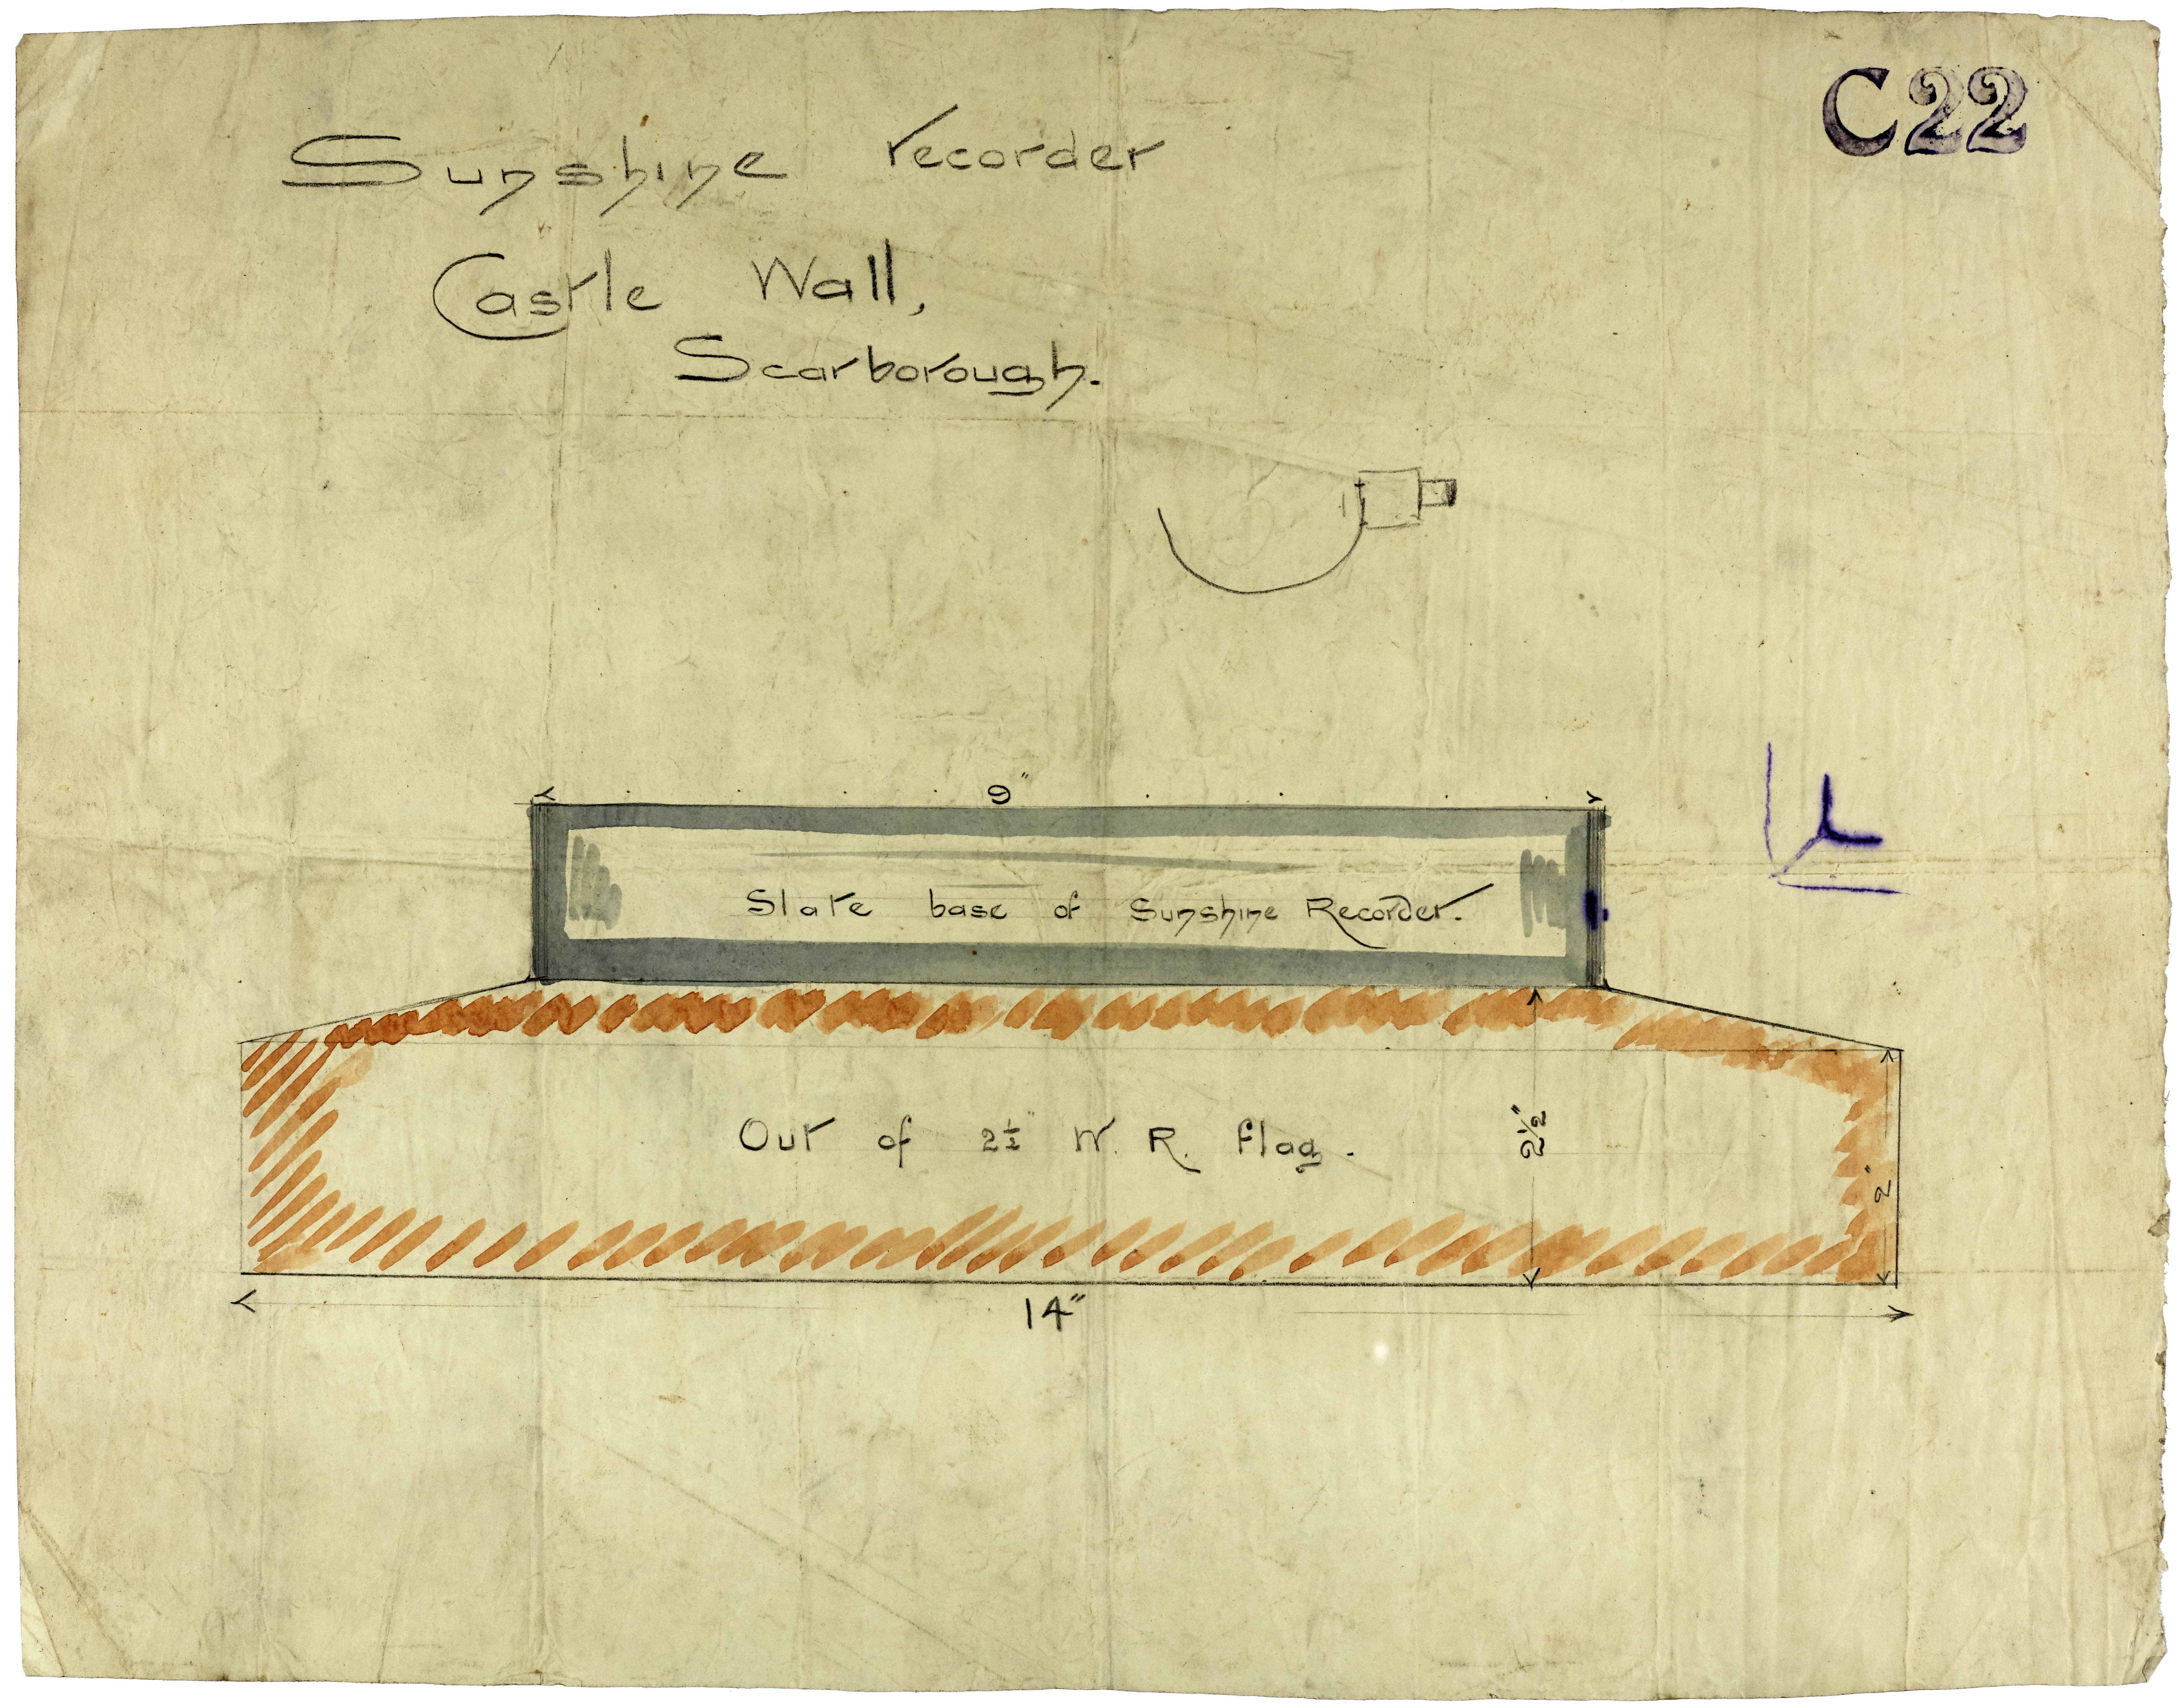 C22
Sunshine recorder
Castle Wall,
Scarborough.
9"
Slate base of Sunshine Recorder.
Out of 2½" W. R. flag.
2½"
2"
14"